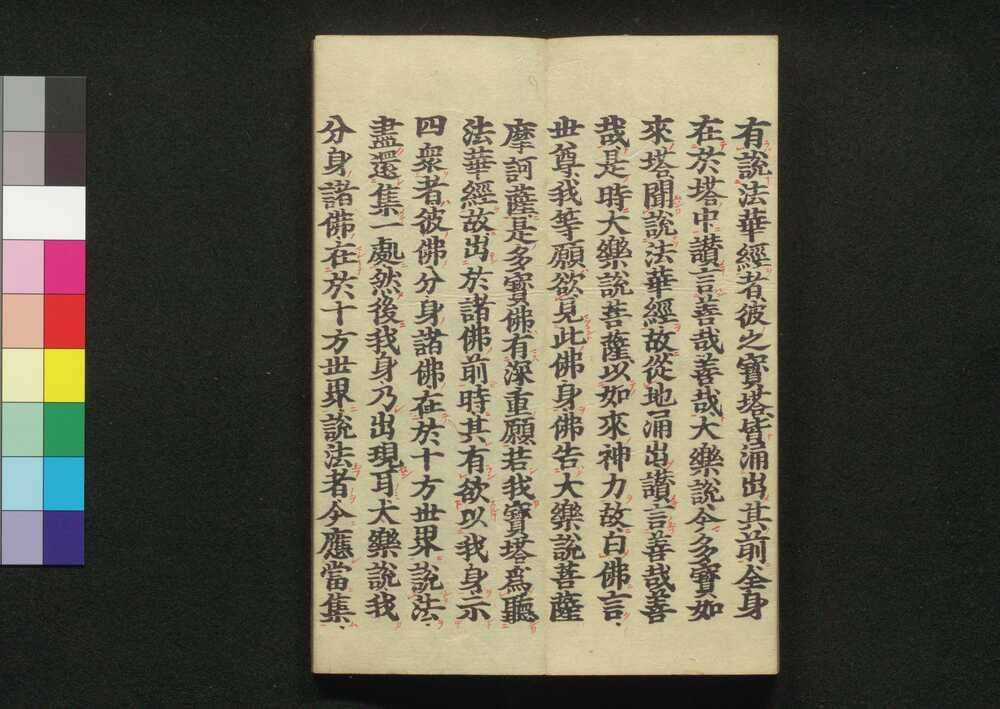 有說法華經者彼之寶塔皆涌出其前全身
在於塔中讚言善哉善哉大樂說今多寶如
來塔聞說法華經故從地涌出讚言善哉善
哉是時大樂說菩薩以如來神力故白佛言
世尊我等願欲見此佛身佛告大樂說菩薩
摩訶薩是多寶佛有深重願若我寶塔為聽
法華經故出於諸佛前時其有欲以我身示
四衆者彼佛分身諸佛在於十方世界說法
盡還集一處然後我身乃出現耳大樂說我
分身諸佛在於十方世界說法者今應當集